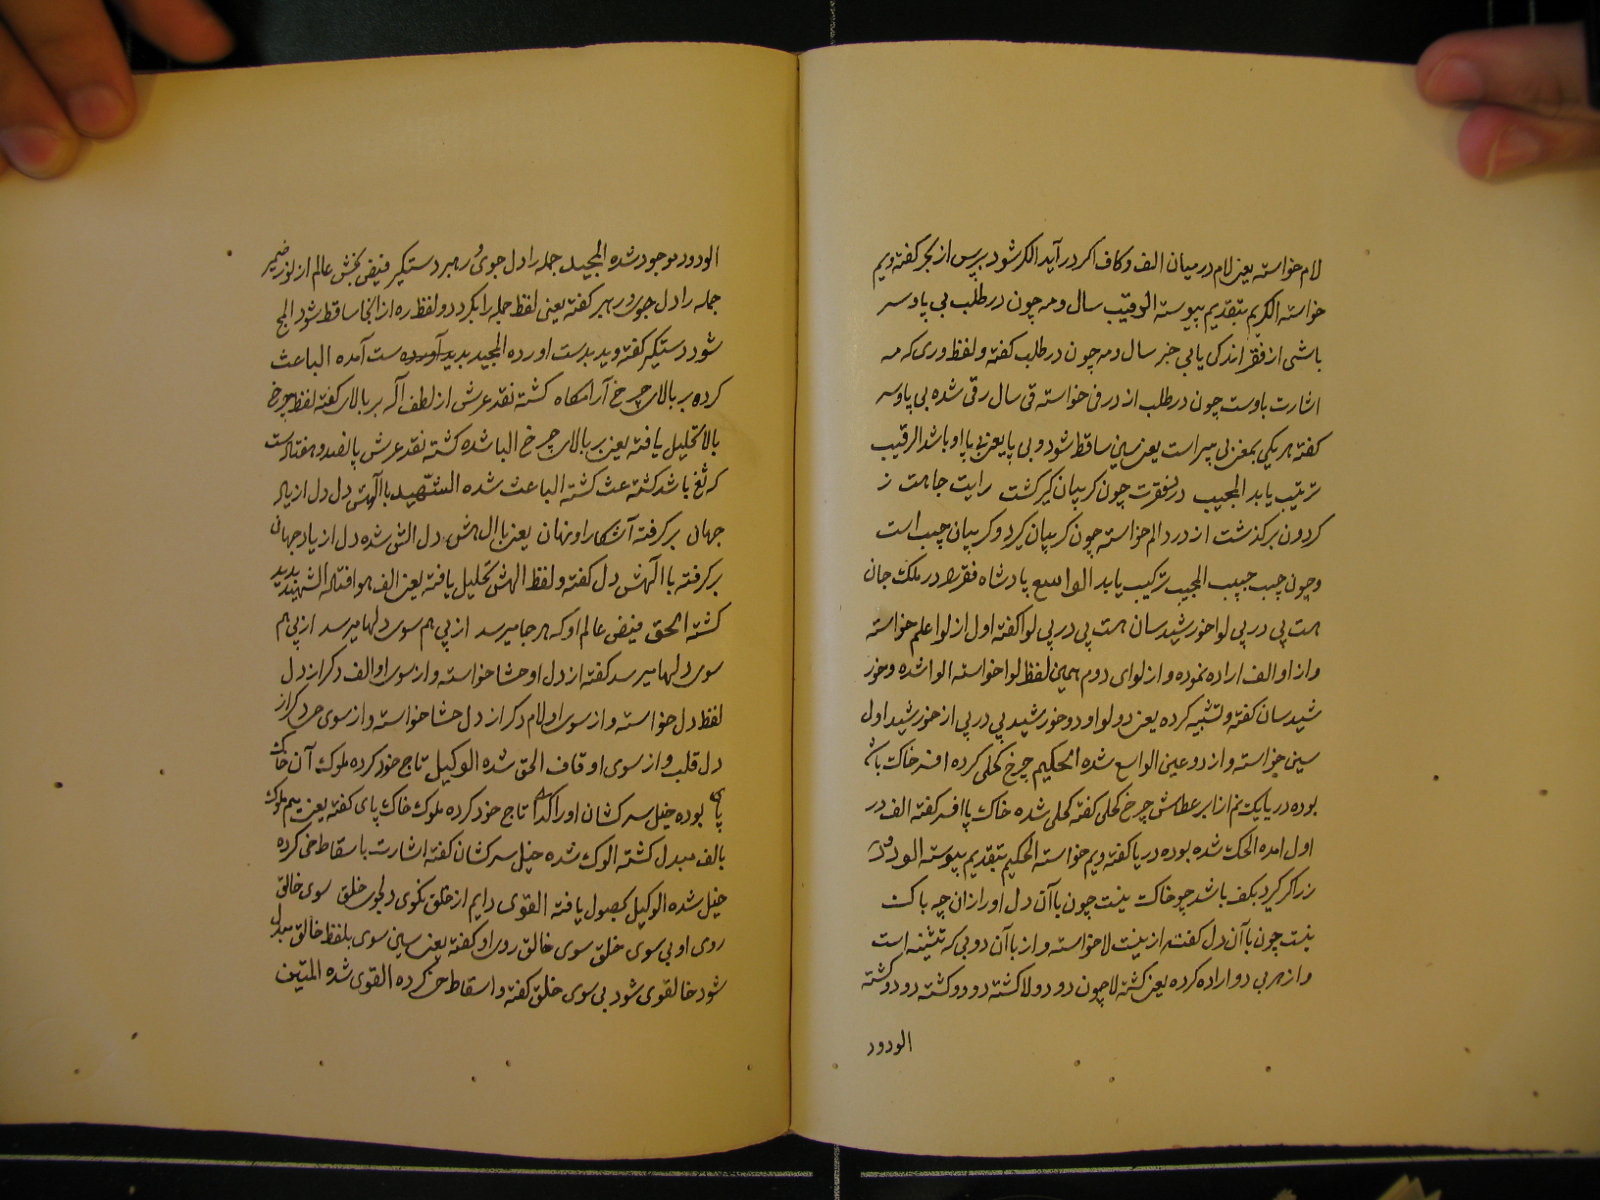 لام خواسته یعنی لام در میان الف و کاف اکر در آید الکر شود بپرس از بحر کفته و یم
خواسته الکریم بتقدیم پیوسته الرقیب سال و مه چون در طلب بی پا و سر
باشی از فقر اندکی یابی خبر سال و مه چون در طلب کفته و لفظ وری که مه
اشارت باوست چون در طلب از در فی خواسته قی سال رقی شده بی پا و سر
کفته هر یکی بمعنی بی سر است یعنی سین ساقط شود و بی پا یعنی بی با او باشد الرقیب
ترتیب یابد المجیب در فقرت چون کریبان کیر کشت رایت جاهت ز
کردون برکذشت از درد الم خواسته چون کریبان کیرد و کریبان جیب است
و چون جیب جیب المجیب ترکیب یابد الواسع پادشاه فقر را در ملک جان
هست پی در پی لوا خورشید سان هست پی در پی لوا کفته اول از لوا علم خواسته
و از او الف اراده نموده و از لوای دوم همین لفظ لوا خواسته الوا شده و خور
شید سان کفته و تشبیه کرده یعنی دو لوا و دو خورشید پی در پی از خورشید اول
سین خواسته و از دو عین الواسع شده الحکیم چرخ کحلی کرده افسر خاک پاش
بوده دریا یک نم از ابر عطاش چرخ کحلی کفته کحلی شده خاک پا افسر کفته الف در
اول امده الحک شده بوده دریا کفته و یم خواسته الحکیم بتقدیم پیوسته الودود
زر اکر کیرد بکف باشد چو خاک نیست چون با آن دل او را زان چه باک
نیست چون با آن دل کفته از نیست لا خواسته و از با آن دو بی که تثنیه است
و از هر بی دو اراده کرده یعنی کشته لا چون دو دو لا کشته دو دو کشته دو دو کشته
الودود
الودود موجود شده المجید جمله را دل جوی و رهبر دستکیر فیض بخش عالم از نور ضمیر
جمله را دل جوی و رهبر کفته یعنی لفظ جمله را بکردد و لفظ ره از انجا ساقط شود المج
شود دستکیر کفته و ید بدست اورده المجید بدید آورده ست آمده الباعث
کرده بر بالای چرخ آرامکاه کشته نقد عرش از لطف اله بر بالای کفته لفظ چرخ
بالا تحلیل یافته یعنی بر بالای چرخ البا شده کشته نقد عرش پانصد و هفتاد است
که ثع باشد کشته عث کشته الباعث شده الشهید با آلهش دل دل از یاد
جهان برکرفته آشکارا و نهان یعنی با ال هش دل الش شده دل از یاد جهان
برکرفته با الهش دل کفته و لفظ الهش تحلیل یافته یعنی الف هوا فتاد الشهید پدید
کشته الحق فیض عالم او که هر جا میرسد از پی هم سوی دلها میرسد از پی هم
سوی دلها میرسد کفته از دل او حشا خواسته و از سوی او الف دکر از دل
لفظ دل خواسته و از سوی او لام دکر از دل حشا خواسته و از سوی ح دکر از
دل قلب و از سوی او قاف الحق شده الوکیل تاج خود کرده ملوک آن خاک
پای بوده خیل سر کشان او را کدا تاج خود کرده ملوک خاک پای کفته یعنی میم ملوک
بالف مبدل کشته الوک شده خیل سر کشان کفته اشارت باسقاط خی کرده
خیل شده الوکیل بحصول یافته القوی دایم از خلق نکوی دلجوی خلق سوی خالق
روی او بی سوی خلق سوی خالق روی او کفته یعنی سین سوی بلفظ خالق مبدل
شود خالقوی شود بی سوی خلق کفته و اسقاط خی کرده القوی شده المتین